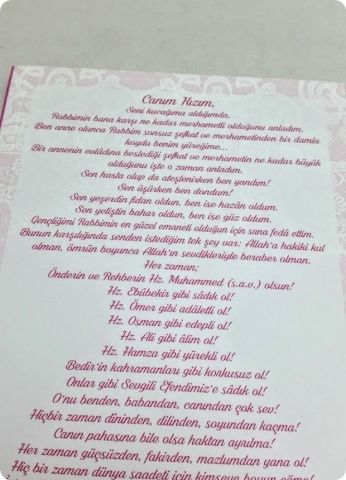 Canım Kızım,
Seni kucağıma aldığımda,
Rabbimin bana karşı ne kadar merhametli olduğunu anladım.
Ben anne olunca Rabbim sonsuz şefkat ve merhametinden bir damla
koydu benim yüreğime...
Bir annenin evlâdına beslediği şefkat ve merhametin ne kadar büyük
olduğunu işte o zaman anladım.
Sen hasta olup da ateşlenirken ben yandım!
Sen üşürken ben dondum!
Sen yeşerdin fidan oldun, ben ise hazân oldum.
Sen yeliştin bahar oldun, ben ise güz oldum.
Gençliğimi Rabbimin en güzel emaneti olduğun için sana fedâ ettim.
Bunun karşılığında senden istediğim tek şey var: Allah'a hakiki kul
olman, ömrün boyunca Allah'ın sevdikleriyle beraber olman.
Her zaman;
Önderin ve Rehberin Hz. Muhammed (s.a.v.) olsun!
Hz. Ebûbekir gibi sâdık ol!
Hz. Ömer gibi adâletli ol!
Hz. Osman gibi edepli ol!
Hz. Ali gibi âlim ol!
Hz. Hamza gibi yürekli ol!
Bedir'in kahramanları gibi korkusuz ol!
Onlar gibi Sevgili Efendimiz'e sâdık ol!
O'nu benden, babandan, canından çok sev!
Hiçbir zaman dîninden, dilinden, soyundan kaçma!
Canın pahasına bile olsa haktan ayrılma!
Her zaman güçsüzden, fakirden, mazlumdan yana ol!
Hiç bir zaman dünya saadeti için kimseye boyun eğme!